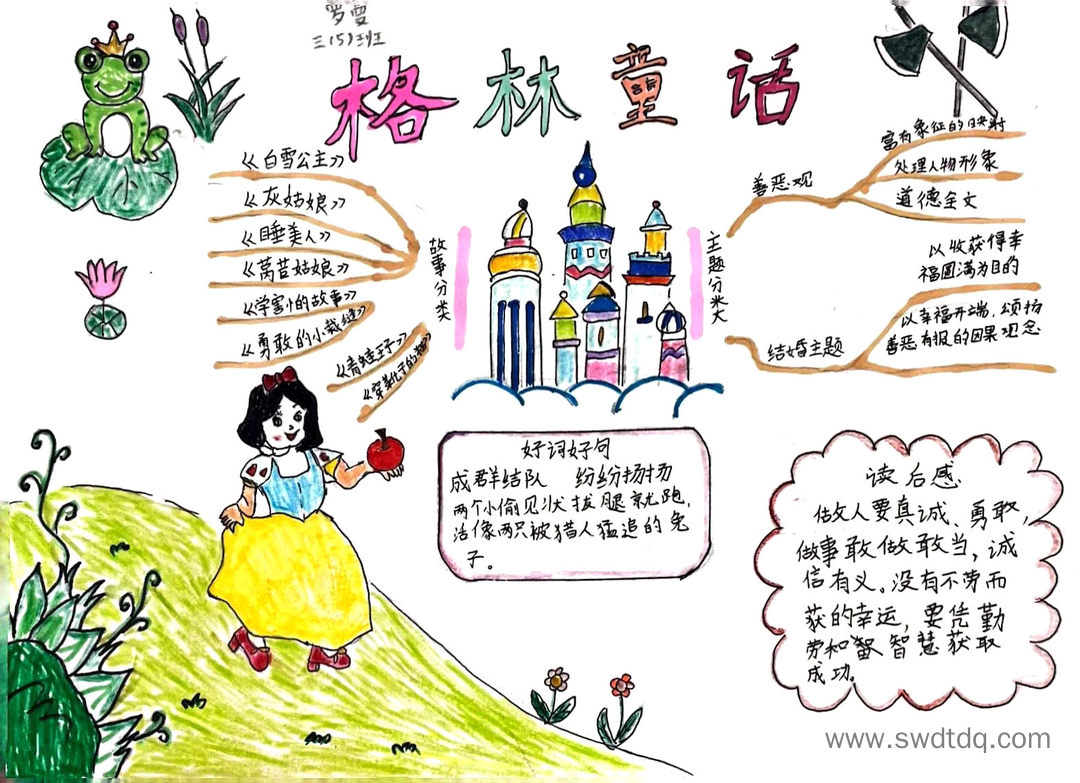 罗雯
三(5)班
格林童话
《白雪公主》
《灰姑娘》
《睡美人》
《莴苣姑娘》
《学害怕的故事》
《勇敢的小裁缝》
《青蛙王子》
《穿靴子的猫》
故事分类
主题分类
善恶观
富有象征的映射
处理人物形象
道德全文
结婚主题
以收获得幸
福圆满为目的
以幸福开端,颂扬
善恶有报的因果观念
好词好句
成群结队 纷纷扬扬
两个小偷见状拔腿就跑,
活像两只被猎人猛追的兔
子。
读后感
做人要真诚、勇敢,
做事敢做敢当,诚
信有义。没有不劳而
获的幸运,要凭勤
劳和智慧获取
成功。
www.swdtdq.com